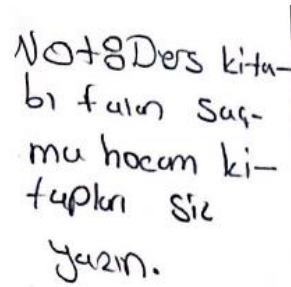 Not: Ders kita-
bı falan saç-
ma hocam ki-
tapları siz
yazın.